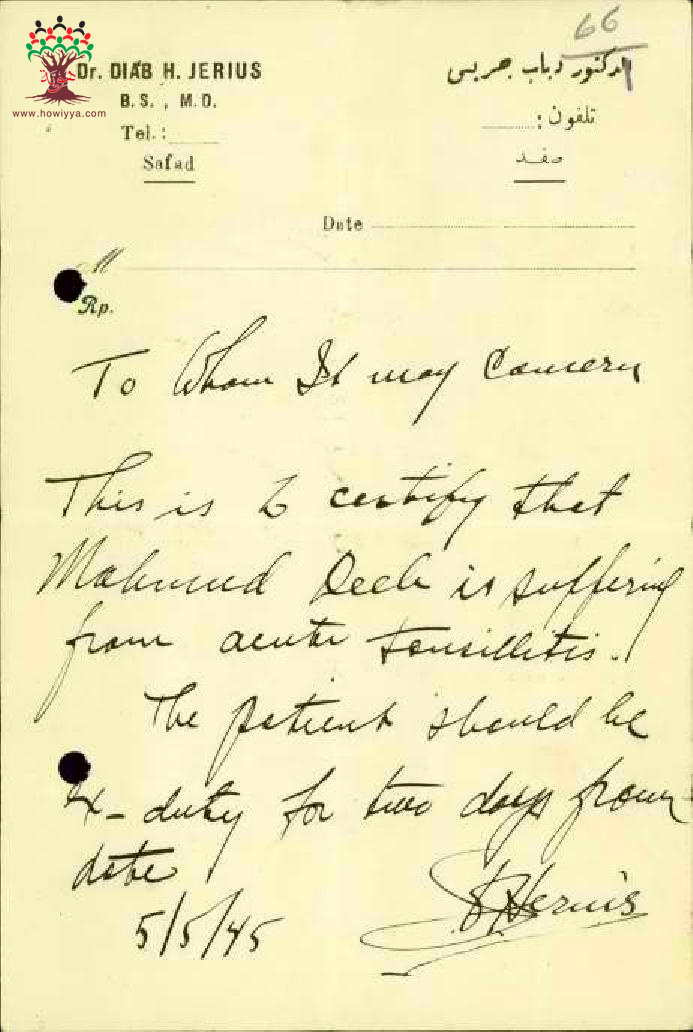 66
www.howiyya.com
Dr. DIAB H. JERIUS
B.S., M.D.
Tel.:
Safad
الدكتور دياب جريس
تلفون:
صفد
Date
M
Rp.
To Whom It may Concern
This is to certify that
Mahmud Deeb is suffering
from acute tonsillitis.
The patient should be
Ex-duty for two days from
date
5/5/45
D. H. Jerius